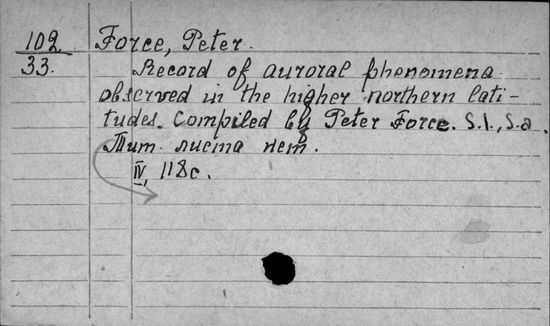 102
33.
Force, Peter.
Record of auroral phenomena
observed in the higher northern lati-
tudes. Compiled by Peter Force. S.l., s.a.
Тит. листа нет.
IV, 118 с.